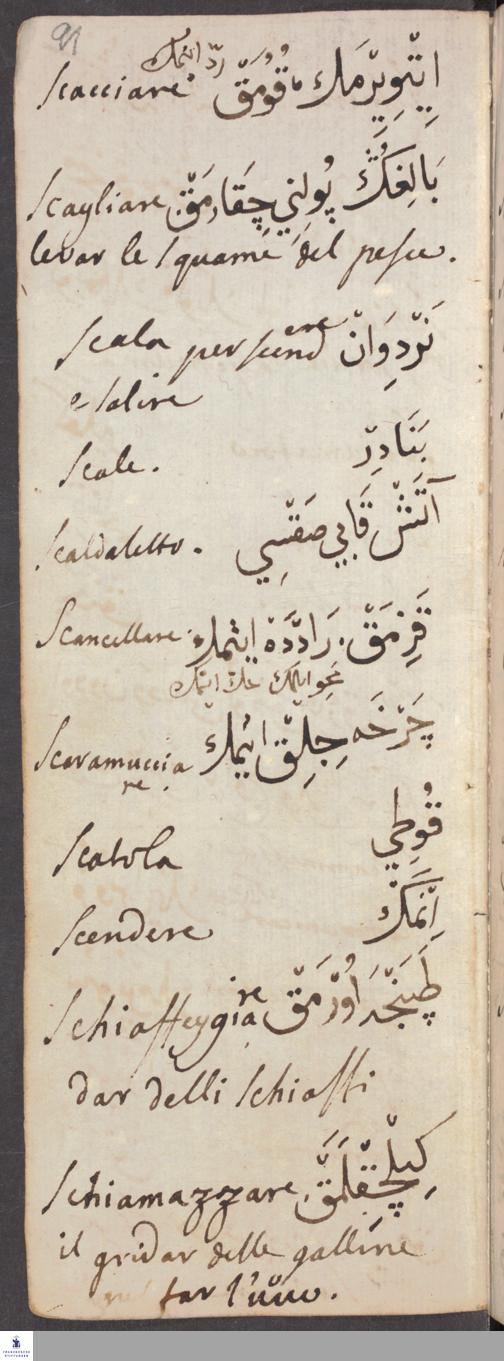 91
ردّ ایتمك
Scacciare. اِیتْیوِیرْمَك، قُومَقْ
Scagliare بَالِغِكْ پُولِنِي چِقَارمَقْ
levar le squame del pesce.
Scala per scendere نَرْدِوَانْ
e salire
Scale. بَنَادِرْ
Scaldaletto. آتَشْ قَابِي صَفْسِي
Scancellare. قَزِمَقْ. رَادَّه ایتمك
محو ایلمك حك ایتمك
Scaramucciare چَرْخَه جِلِقْ ایْتمك
Scatola قُوطِي
Scendere اِنْمَكْ
Schiaffeggiare طَپَنْجَه اُورْمَقْ
dar delli schiaffi
Schiamazzare.
il gridar delle galline
far l'uuo.
FRANCKESCHE STIFTUNGEN